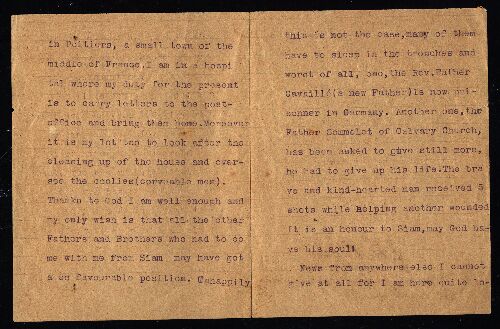 in Poitiers, a small town of the
middle of France.I am in a hospi
tal where my duty for the present
is to carry letters to the post-
office and bring them home.Moreover
it is my lot too to look after the
cleaning up of the house and over-
see the coolies(
Thanks to God I am well enough and
my only wish is that all the other
Fathers and Brothers who had to co
me with me from Siam may have got
a so favourable position. Unhappily
this is not the case,many of them
have to sleep in the trenches and
worst of all, one,the Rev.Father
(a new Father)is now pri-
sonner in Germany. Another one,the
Father of Calvary Church,
has been asked to give still more,
he had to give up his life.The bra
ve and kind-hearted man received 5
shots while helping another wounded
it is an honour to Siam,may God ha-
ve his soul!
. News from anywhere else I cannot
give at all for I am here quite lo-